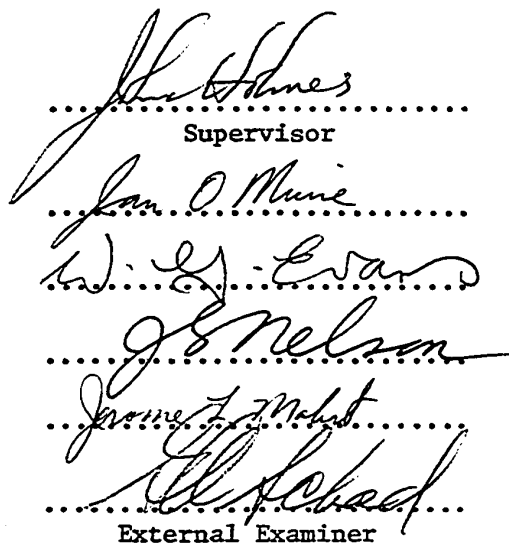 John Holmes
Supervisor
Jan O Murie
W. G. Evans
JS Nelson
Jerome L Mahrt
Schad
External Examiner